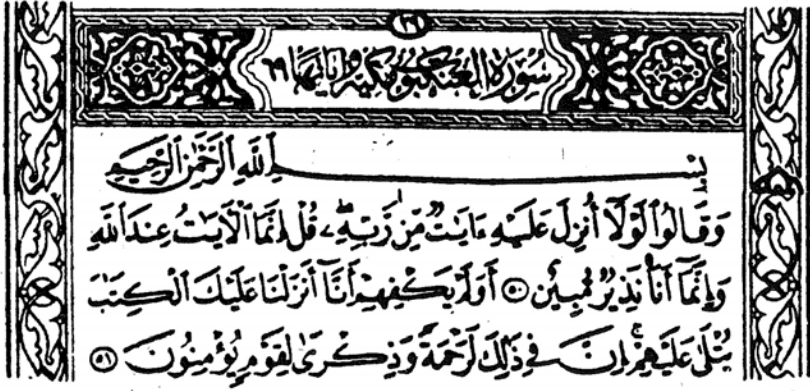 سُورَة العَنكبوت مكية وآياتها ٦٩
بِسْمِ اللَّهِ الرَّحْمَٰنِ الرَّحِيمِ
وَقَالُوا لَوْلَا أُنزِلَ عَلَيْهِ ءَايَٰتٌ مِّن رَّبِّهِۦ ۖ قُلْ إِنَّمَا الْآيَٰتُ عِندَ اللَّهِ
وَإِنَّمَا أَنَا۠ نَذِيرٌ مُّبِينٌ ٥٠ أَوَلَمْ يَكْفِهِمْ أَنَّا أَنزَلْنَا عَلَيْكَ الْكِتَٰبَ
يُتْلَىٰ عَلَيْهِمْ ۚ إِنَّ فِي ذَٰلِكَ لَرَحْمَةً وَذِكْرَىٰ لِقَوْمٍ يُؤْمِنُونَ ٥١